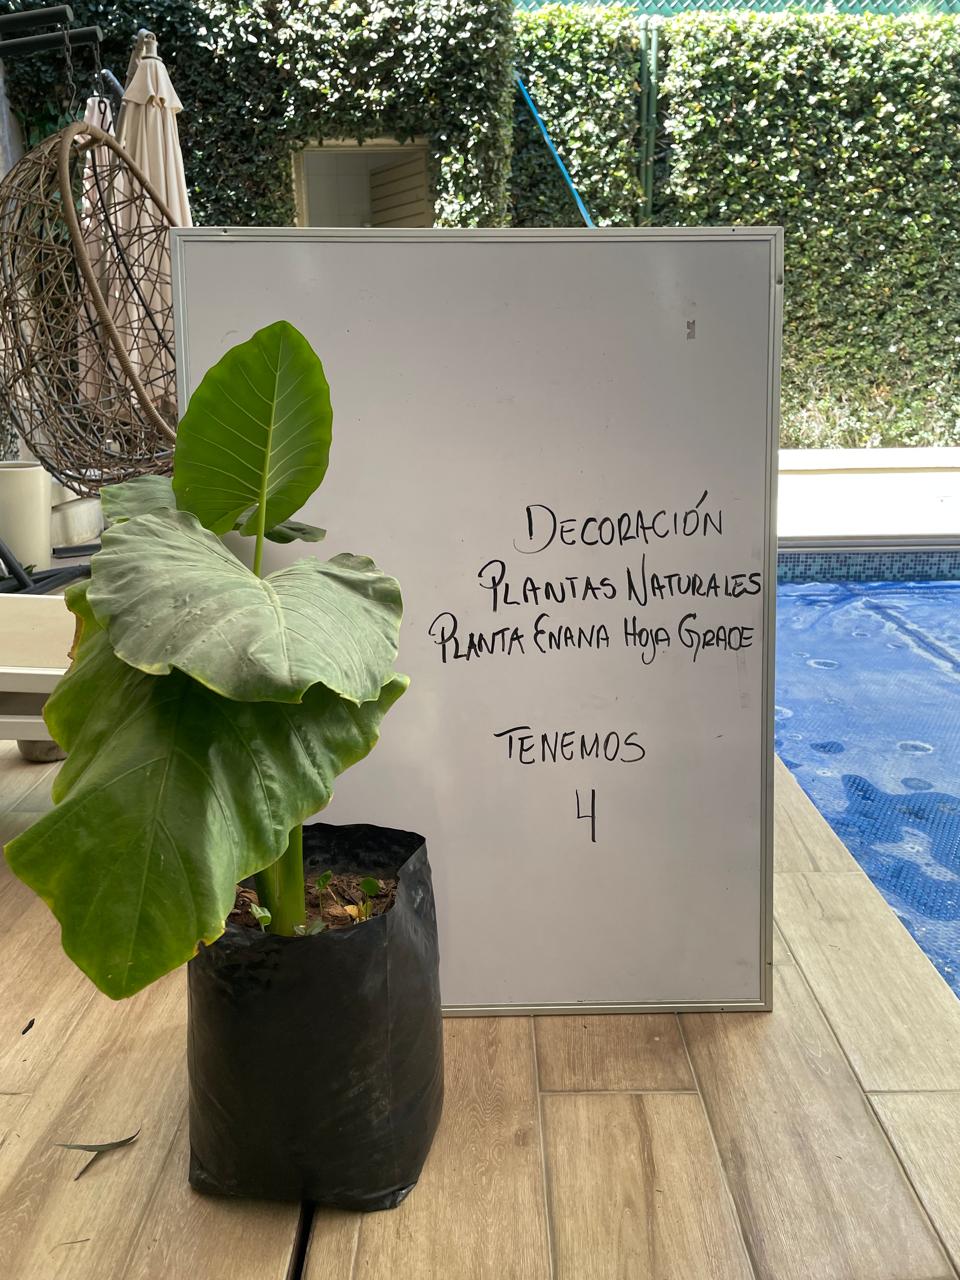 DECORACIÓN
PLANTAS NATURALES
PLANTA ENANA HOJA GRACE
TENEMOS
4